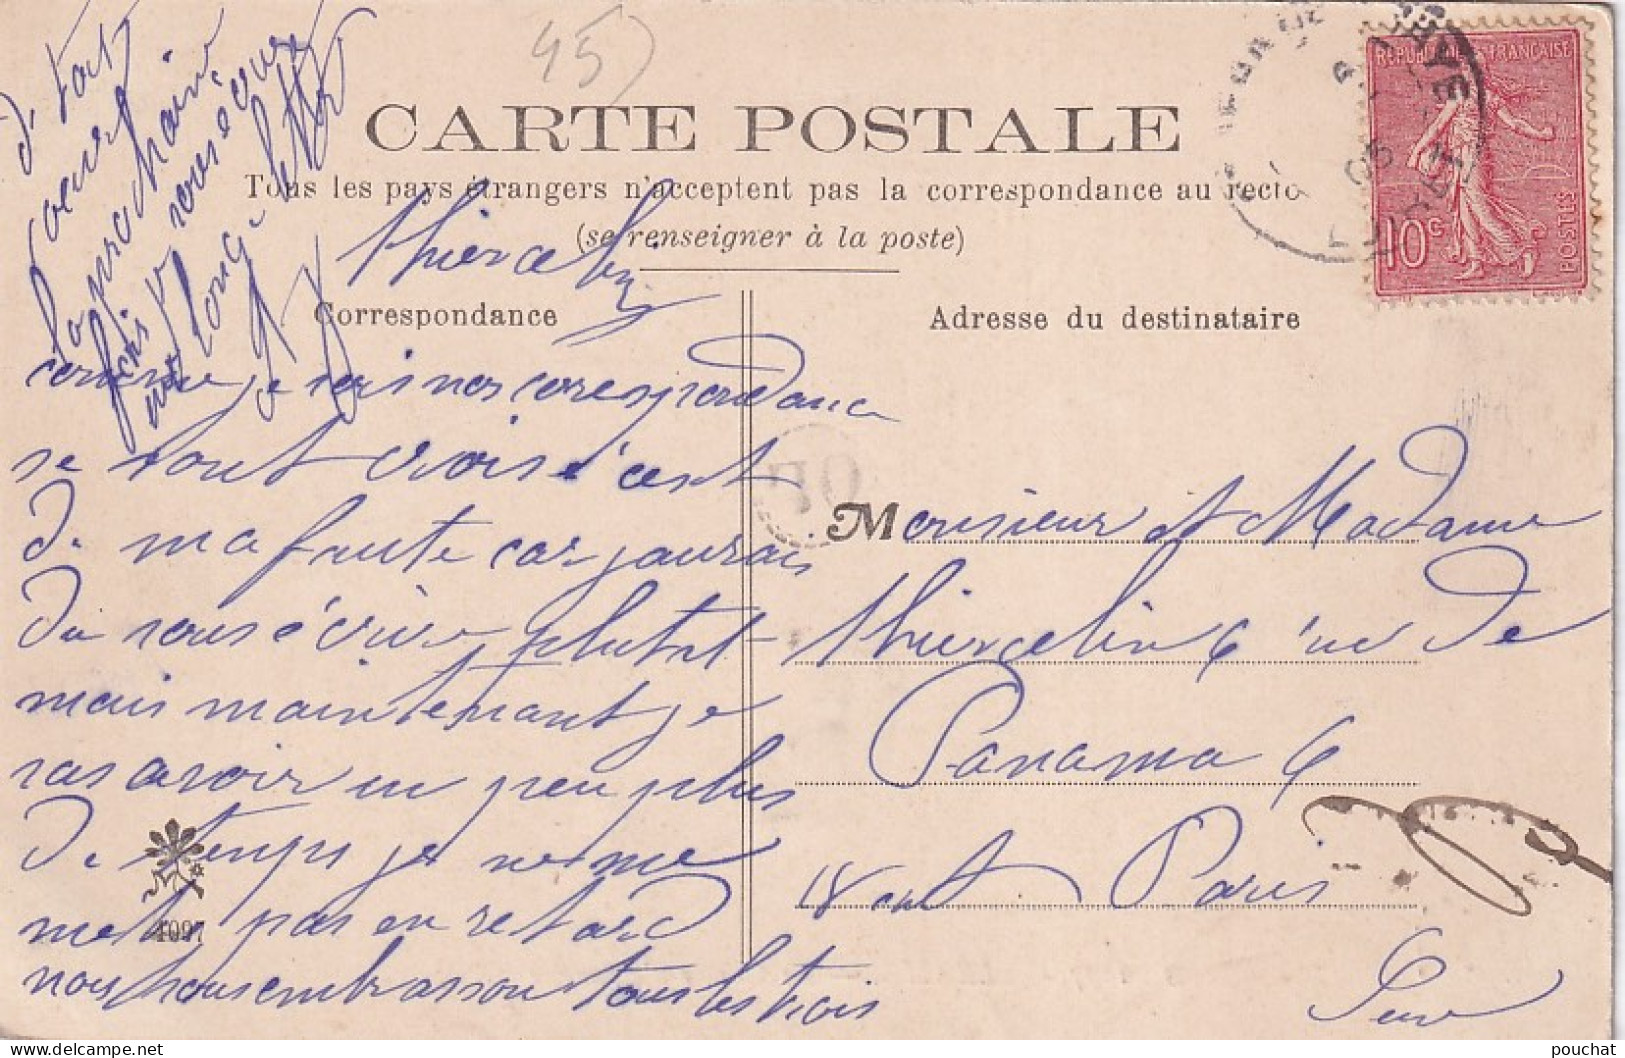 45)
CARTE POSTALE
Tous les pays étrangers n'acceptent pas la correspondance au recto
(se renseigner à la poste)
Correspondance
Adresse du destinataire
RÉPUBLIQUE FRANÇAISE
10c
POSTES
OL
thiercelin
comme je vois nos correspondance
se sont croise c'est
de ma faute car jaurais
du vous écrire plutot
mais maintenant je
vas avoir un peu plus
de temps je ne me
met pas en retard
nous vous embrasson tous les trois
de tout
coeur
la prochaine
fois je vous écrire
une longue lettre
4097
Monsieur et Madame
thiercelin 6 rue de
Panama 6
18 art Paris
Seine
pouchat